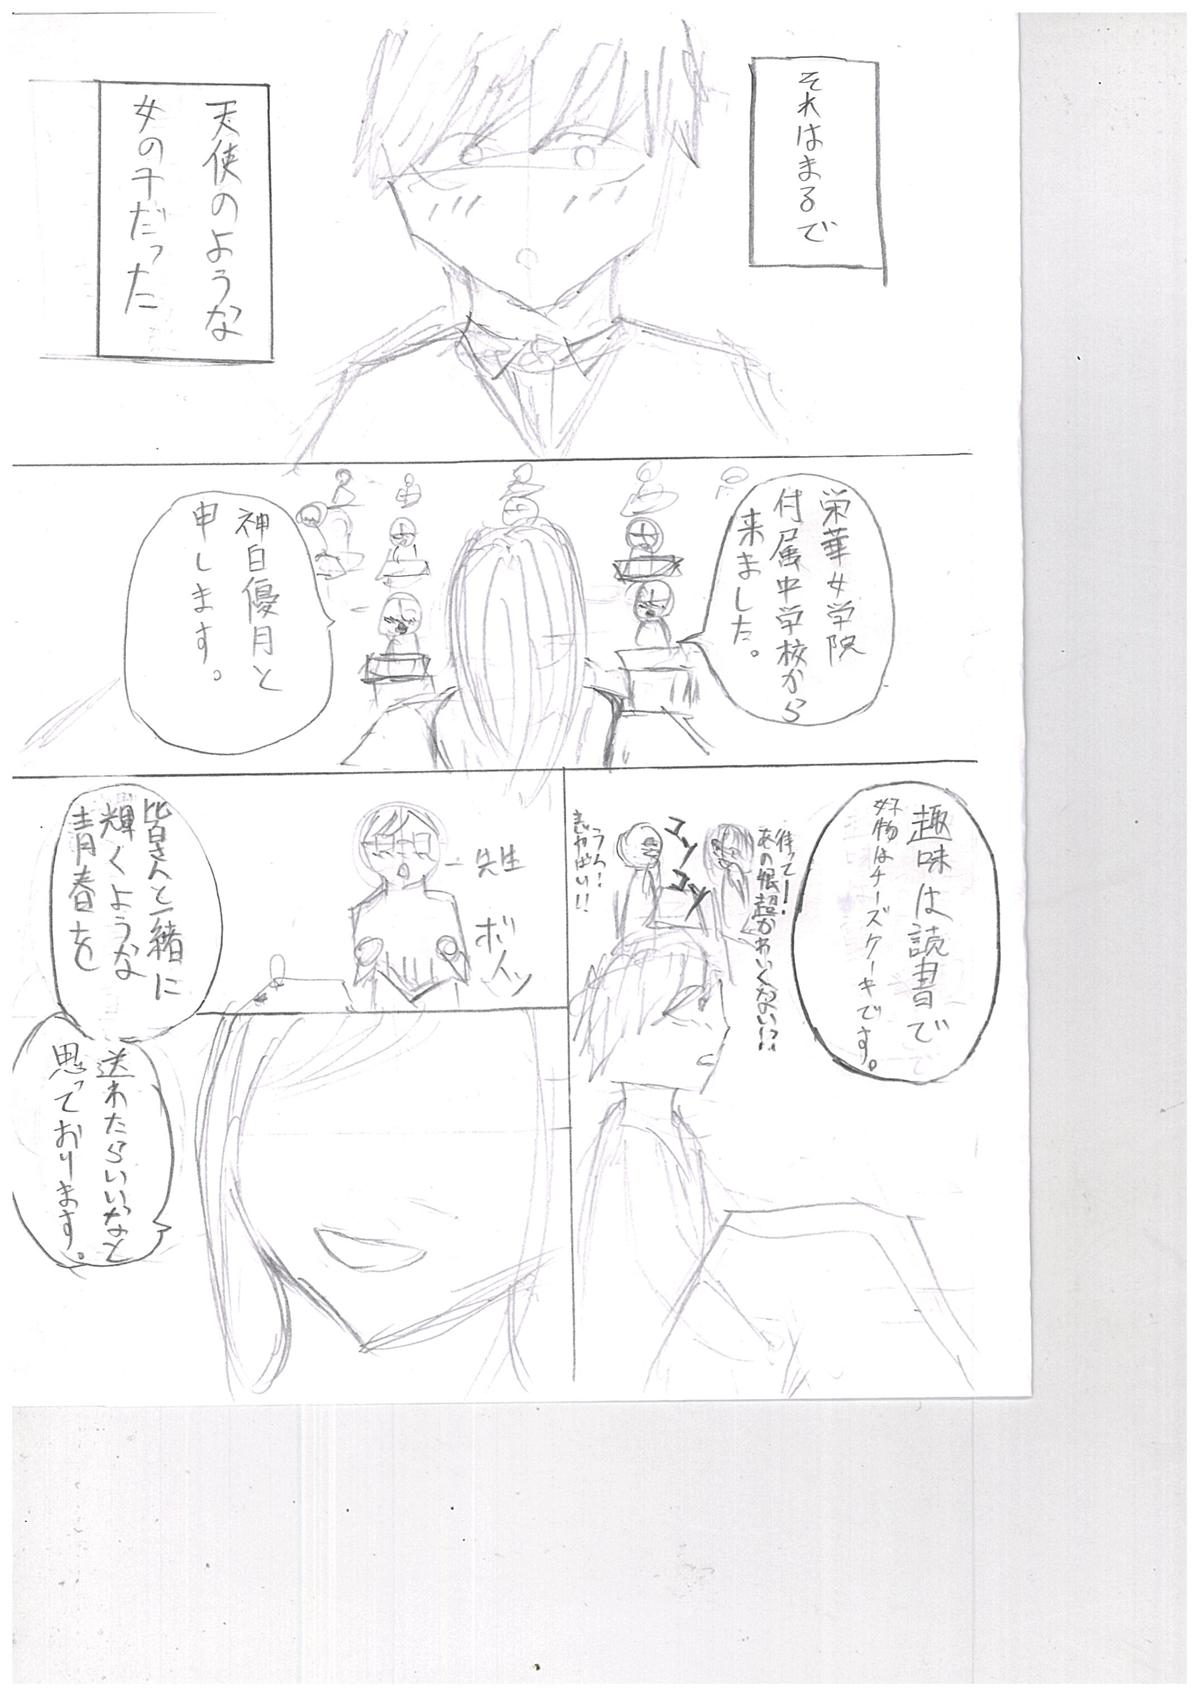 それはまるで
天使のような
女の子だった
栄華女学院
付属中学校から
来ました。
神白優月と
申します。
趣味は読書で
好物はチーズケーキです。
待って!
あの娘超かわいくない!?
コソ
コソ
うん!
まじやばい!!
先生
ボイッ
皆さんと一緒に
輝くような
青春を
送れたらいいなと
思っております。